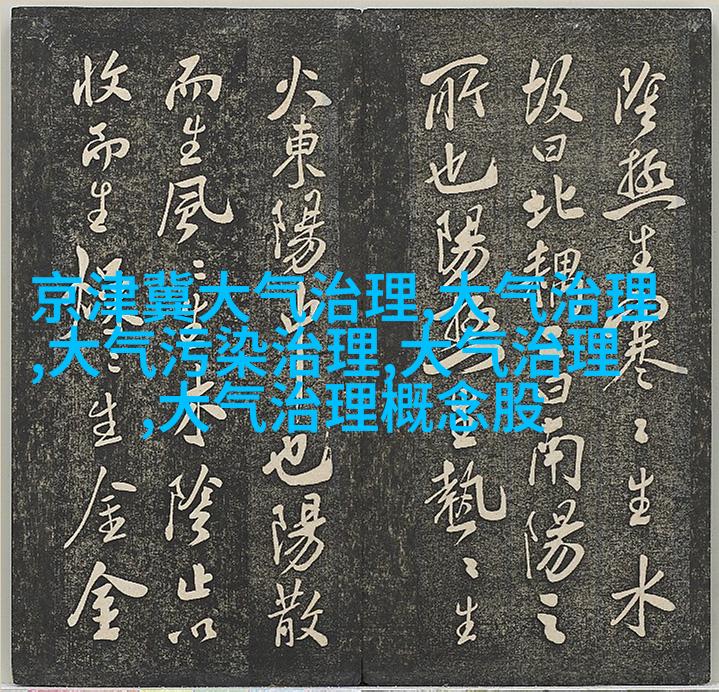 京津冀大气治理,大气治理
,大气污染治理,大气治理
,大气治理概念股
陰極生寒〻生水
故曰北耦曰南陽之
所也陽極生熱〻生
火東陽也陽散
而生風〻生木陰止以
收而生燥〻生金金